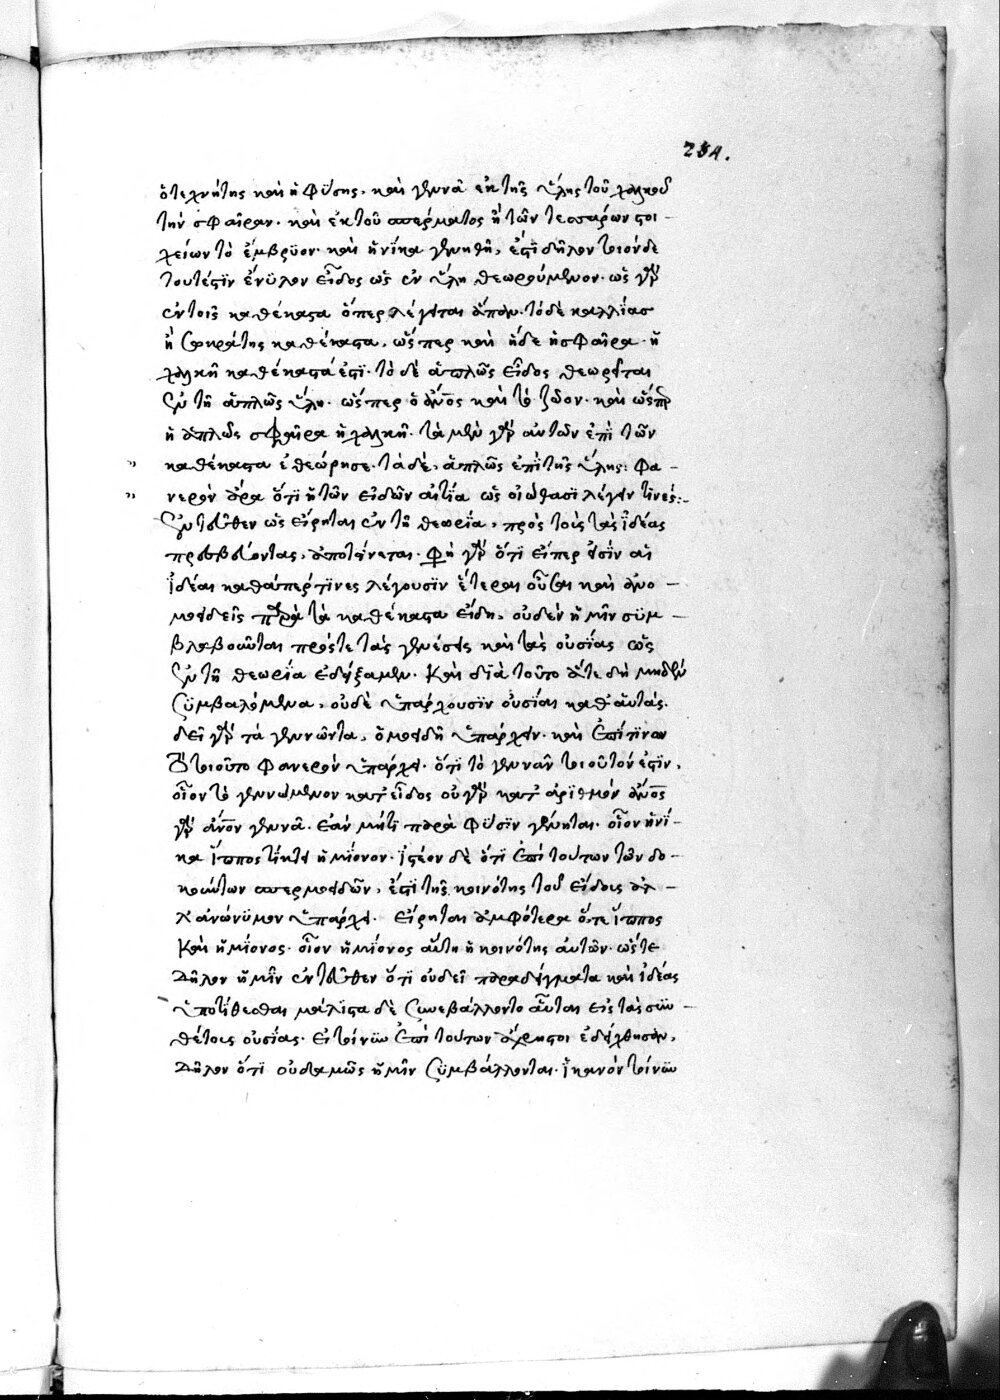 254.
ὁ τεχνήτης καὶ ἡ φύσης, καὶ γεννᾶ ἐκ τῆς ὕλης τοῦ χαλκοῦ
τὴν σφαῖραν. καὶ ἐκ τοῦ σπέρματος ἢ τῶν τεσσάρων στοι-
χείων τὸ ἔμβρϋον. καὶ ἡνίκα γεννηθῆ, ἐστϊ δῆλον τοιόνδε
τουτέστϊν ἔνϋλον εἶδος ὡς ἐν ὕλη θεωρούμενον. ὡς γὰρ
ἐν τοῖς καθέκαστα ὅπερ λέγεται ἅπαν. τόδε καλλίας
ἢ σωκράτης καθέκαστα, ὥσπερ καὶ ἥδε ἡ σφαῖρα ἡ
χαλκῆ καθέκαστά ἐστϊ. τὸ δὲ ἁπλῶς εἶδος θεωρεῖται
ἐν τῆ ἁπλῶς ὕλη. ὥσπερ ὁ ἄνος καὶ τὸ ζῶον. καὶ ὥσπερ
ἡ ἁπλῶς σφαῖρα ἡ χαλκῆ. τὰ μὲν γὰρ αὐτῶν ἐπὶ τῶν
" καθέκαστα ἐθεώρησε. τὰ δὲ, ἁπλῶς ἐπὶ τῆς ὕλης: Φα-
" νερὸν ἄρα ὅτϊ ἡ τῶν εἰδῶν αἰτία ὡς εἰώθασϊ λέγειν τινές:-
Ἐντεῦθεν ὡς εἴρηται ἐν τῆ θεωρία, πρὸς τοὺς τὰς ἰδέας
πρεσβεύοντας, ἀποτείνεται. φησὶ γὰρ ὅτϊ εἴπερ εἰσὶν αἱ
ἰδέαι καθάπερ τϊνες λέγουσϊν ἕτεραι οὖσαι καὶ ἀνο-
μοειδεῖς παρὰ τὰ καθέκαστα εἴδη, οὐδὲν ἡμῖν συμ-
βλαβοῦνται πρός τε τὰς γενέσεις καὶ τὰς οὐσίας ὡς
ἐν τῆ θεωρία ἐδείξαμεν. Καὶ διὰ τοῦτο ἅτε δὴ μηδὲν
συμβαλόμενα, οὐδὲ ὑπάρχουσϊν οὐσίαι καθ' αὑτάς.
δεῖ γὰρ τὰ γεννῶντα, ὁμοειδῆ ὑπάρχειν. καὶ ἐπί τϊνων
τὸ τοιοῦτο φανερὸν ὑπάρχει. ὅτϊ τὸ γεννᾶν τοιοῦτόν ἐστϊν,
οἷον τὸ γεννώμενον κατ' εἶδος οὐ γὰρ κατ' ἀριθμόν ἄνος
γὰρ ἄνον γεννᾶ. ἐὰν μήτϊ παρὰ φύσϊν γένηται. οἷον ἡνί-
κα ἵππος τίκτει ἡμίονον. ἰστέον δὲ ὅτϊ ἐπὶ τούτων τῶν δο-
κούντων σπερμοειδῶν, ἐστϊ τῆς κοινότης τοῦ εἴδοις ἀλ-
λ' ἀνώνϋμον ὑπάρχει. εἴρηται ἀμφότερα ὅ, τε ἵππος
Καὶ ἡμίονος. οἷον ἡμίονος αὕτη ἡ κοινότης αὐτῶν. ὥστε
δῆλον ἡμῖν ἐντεῦθεν ὅτϊ οὐδεῖ παραδείγματα καὶ ἰδέας
ὑποτίθεσθαι μάλϊστα δὲ συνεβάλλοντο αὗται εἰς τὰς συν-
θέτοις οὐσίας. εἰ τοίνυν ἐπὶ τούτων ἄχρηστοι ἐδείχθησαν,
δῆλον ὅτϊ οὐδαμῶς ἡμῖν συμβάλλονται. ἱκανὸν τοίνυν